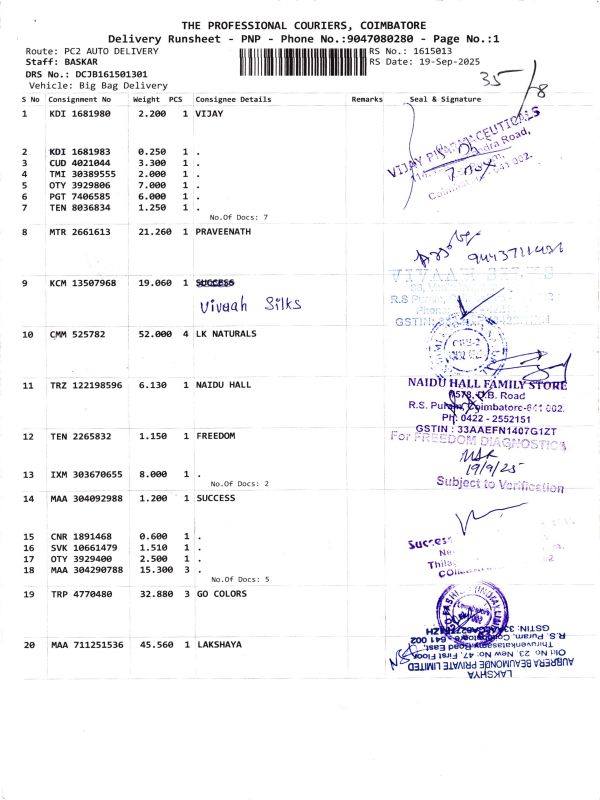 THE PROFESSIONAL COURIERS, COIMBATORE
Delivery Runsheet - PNP - Phone No.:9047080280 - Page No.:1
Route: PC2 AUTO DELIVERY
RS No.: 1615013
Staff: BASKAR
RS Date: 19-Sep-2025
DRS No.: DCJB161501301
35/8
Vehicle: Big Bag Delivery
S No Consignment No Weight PCS Consignee Details Remarks Seal & Signature
1 KDI 1681980 2.200 1 VIJAY
VIJAY PHARMACEUTICALS
Road,
2 KDI 1681983 0.250 1 .
3 CUD 4021044 3.300 1 .
4 TMI 30389555 2.000 1 .
5 OTY 3929806 7.000 1 .
6 PGT 7406585 6.000 1 .
7 TEN 8036834 1.250 1 .
No.Of Docs: 7
8 MTR 2661613 21.260 1 PRAVEENATH
9 KCM 13507968 19.060 1 SUCCESS
Vivaah Silks
VIVAAH SILKS
R.S Puram,
GSTIN:
10 CMM 525782 52.000 4 LK NATURALS
11 TRZ 122198596 6.130 1 NAIDU HALL
NAIDU HALL FAMILY STORE
D.B. Road
R.S. Puram, Coimbatore-641 002.
PH: 0422 - 2552151
GSTIN : 33AAEFN1407G1ZT
12 TEN 2265832 1.150 1 FREEDOM
For FREEDOM DIAGNOSTICS
19/9/25
13 IXM 303670655 8.000 1 .
No.Of Docs: 2
Subject to Verification
14 MAA 304092988 1.200 1 SUCCESS
15 CNR 1891468 0.600 1 .
Success
16 SVK 10661479 1.510 1 .
17 OTY 3929400 2.500 1 .
18 MAA 304290788 15.300 3 .
No.Of Docs: 5
19 TRP 4770480 32.880 3 GO COLORS
20 MAA 711251536 45.560 1 LAKSHAYA
LAKSHYA
AUBRERA BEAUMONDE PRIVATE LIMITED
Old No. 23, New No: 47, First Floor,
Thiruvenkatasamy Road East,
R.S. Puram, Coimbatore - 641 002